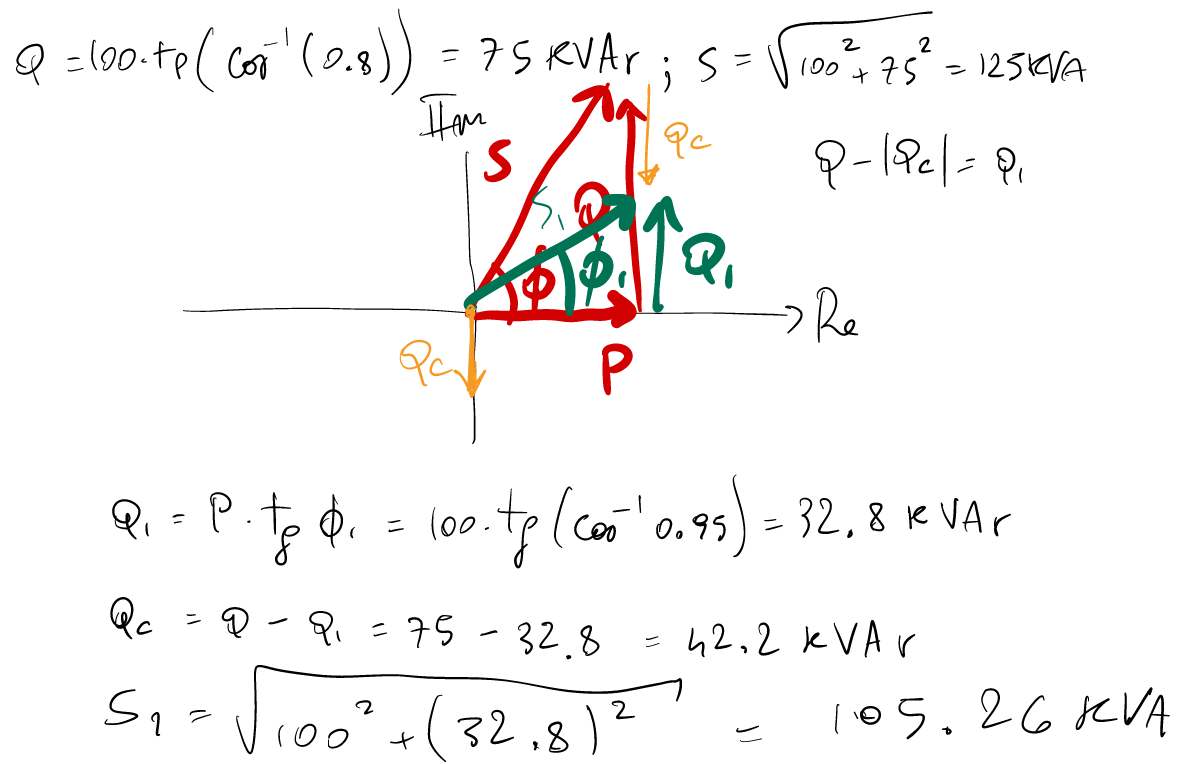 Q = 100.tg(cos⁻¹(0.8)) = 75 KVAr ; S = √100² + 75² = 125 KVA
Im
Qc
Q - |Qc| = Q₁
S
S₁
Q
ϕ
ϕ₁
Q₁
Re
Qc
P
Q₁ = P . tg ϕ₁ = 100 . tg (cos⁻¹ 0.95) = 32.8 KVAr
Qc = Q - Q₁ = 75 - 32.8 = 42.2 KVAr
S₁ = √100² + (32.8)² = 105.26 KVA